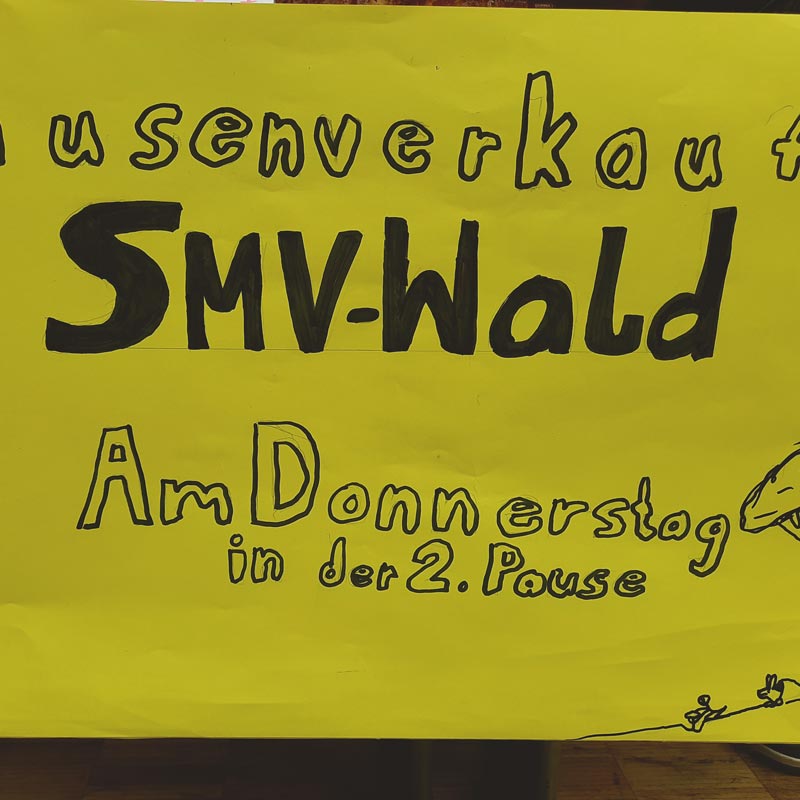 ausenverkauf
SMV-Wald
Am Donnerstag
in der 2. Pause